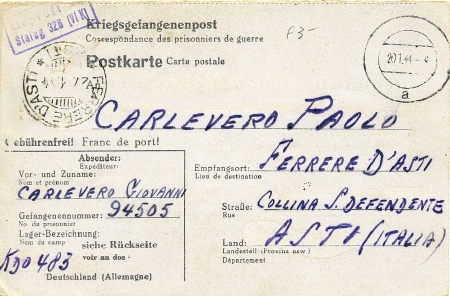 Stalag 328 (VIK)
Kriegsgefangenenpost
Correspondance des prisonniers de guerre
F3-
Postkarte Carte postale
FERRERE D'ASTI
20.1.44
a
CARLEVERO PAOLO
Gebührenfrei! Franc de port!
Absender:
Expéditeur:
Vor- und Zuname:
Nom et prénom
CARLEVERO GIOVANNI
Gefangenennummer: 94505
No. du prisonnier
Lager-Bezeichnung:
Nom du camp
siehe Rückseite
voir au dos
KDO 483
Deutschland (Allemagne)
Empfangsort: FERRERE D'ASTI
Lieu de destination
Straße: COLLINA S. DEFENDENTE
Rue
Land: ASTI (ITALIA)
Landesteil (Provinz usw.)
Département